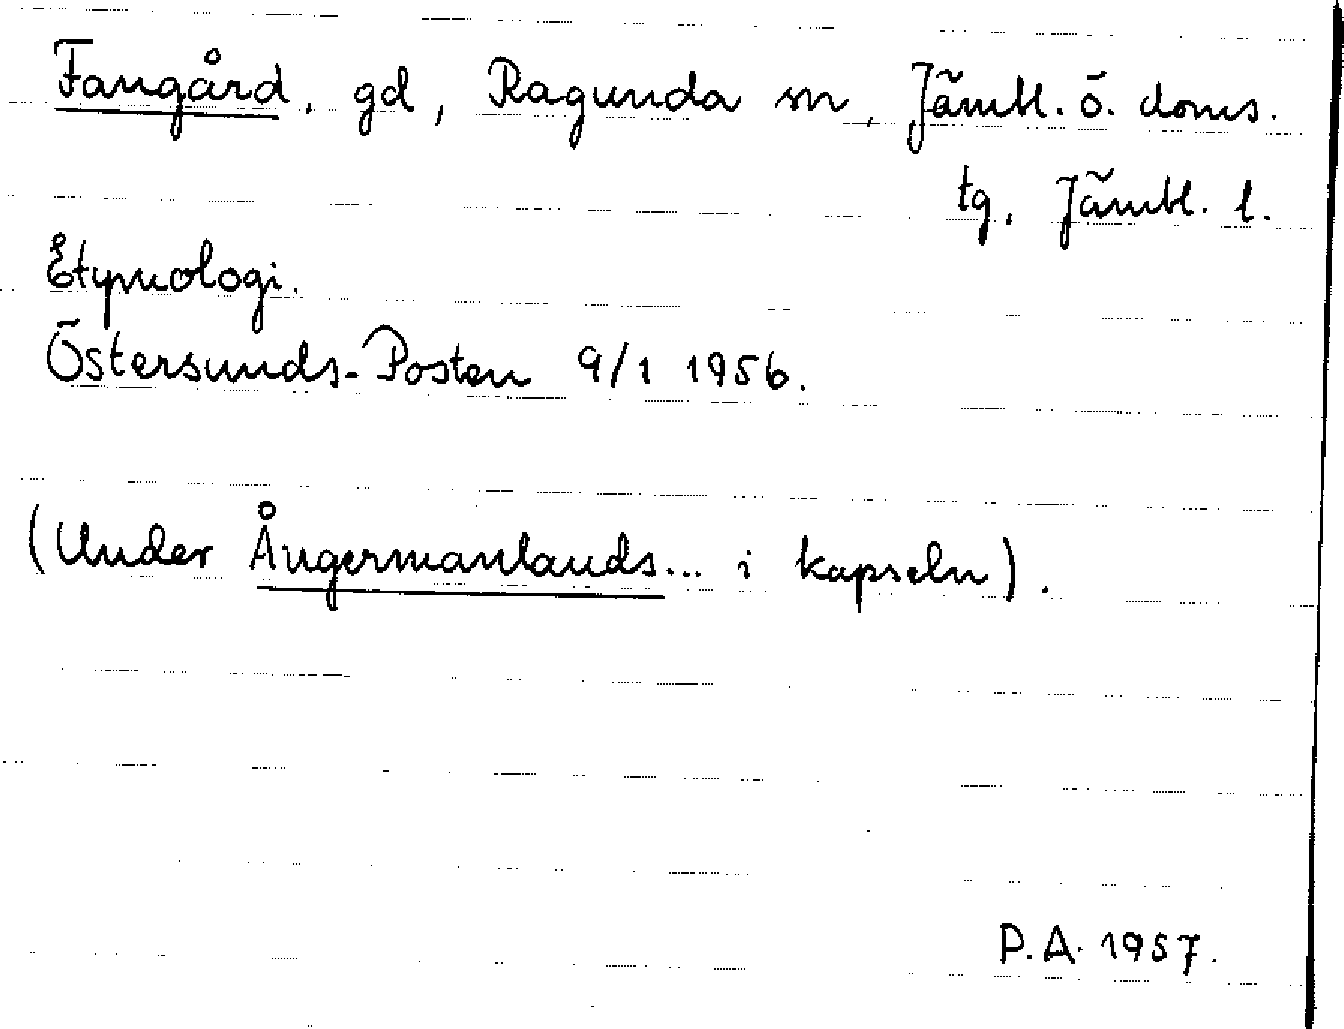 Fangård, gd, Ragunda sn, Jämtl. ö. doms.
tg, Jämtl. l.
Etymologi.
Östersunds-Posten 9/1 1956.
(Under Ångermanlands... i kapseln).
P.A. 1957.